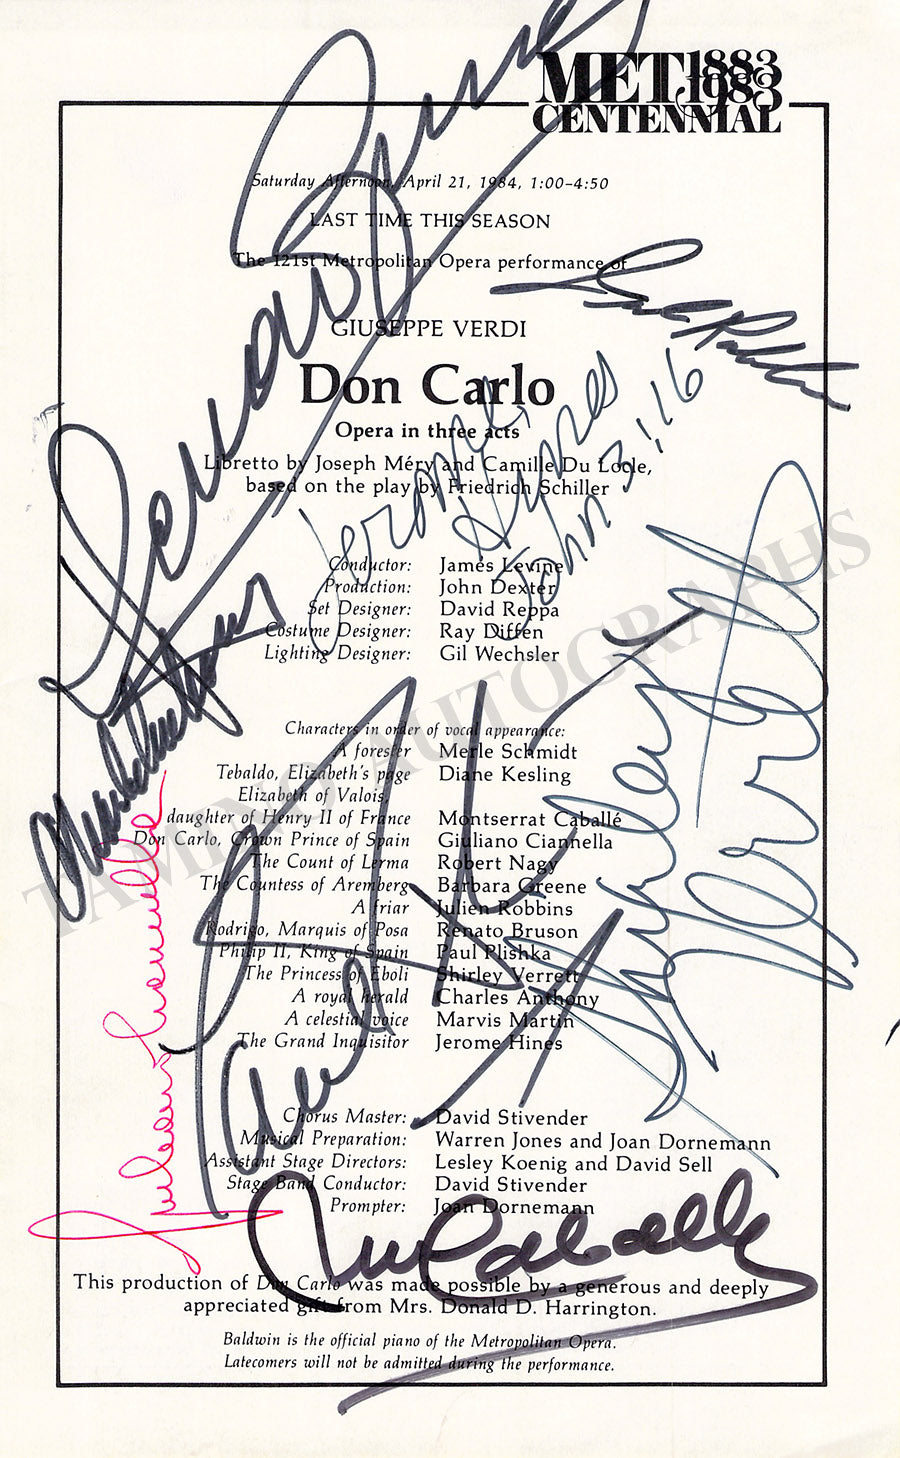 MET 1883 1983
CENTENNIAL
Saturday Afternoon, April 21, 1984, 1:00–4:50
LAST TIME THIS SEASON
The 121st Metropolitan Opera performance of
GIUSEPPE VERDI
Don Carlo
Opera in three acts
Libretto by Joseph Méry and Camille Du Locle,
based on the play by Friedrich Schiller
Conductor: James Levine
Production: John Dexter
Set Designer: David Reppa
Costume Designer: Ray Diffen
Lighting Designer: Gil Wechsler
Characters in order of vocal appearance:
A forester Merle Schmidt
Tebaldo, Elizabeth's page Diane Kesling
Elizabeth of Valois,
daughter of Henry II of France Montserrat Caballé
Don Carlo, Crown Prince of Spain Giuliano Ciannella
The Count of Lerma Robert Nagy
The Countess of Aremberg Barbara Greene
A friar Julien Robbins
Rodrigo, Marquis of Posa Renato Bruson
Philip II, King of Spain Paul Plishka
The Princess of Eboli Shirley Verrett
A royal herald Charles Anthony
A celestial voice Marvis Martin
The Grand Inquisitor Jerome Hines
Chorus Master: David Stivender
Musical Preparation: Warren Jones and Joan Dornemann
Assistant Stage Directors: Lesley Koenig and David Sell
Stage Band Conductor: David Stivender
Prompter: Joan Dornemann
This production of Don Carlo was made possible by a generous and deeply
appreciated gift from Mrs. Donald D. Harrington.
Baldwin is the official piano of the Metropolitan Opera.
Latecomers will not be admitted during the performance.
Renato Bruson
Jerome
Hines
John 3:16
Shirley
Verrett
Giuliano Ciannella
Paul
M Caballé
TAMINO AUTOGRAPHS